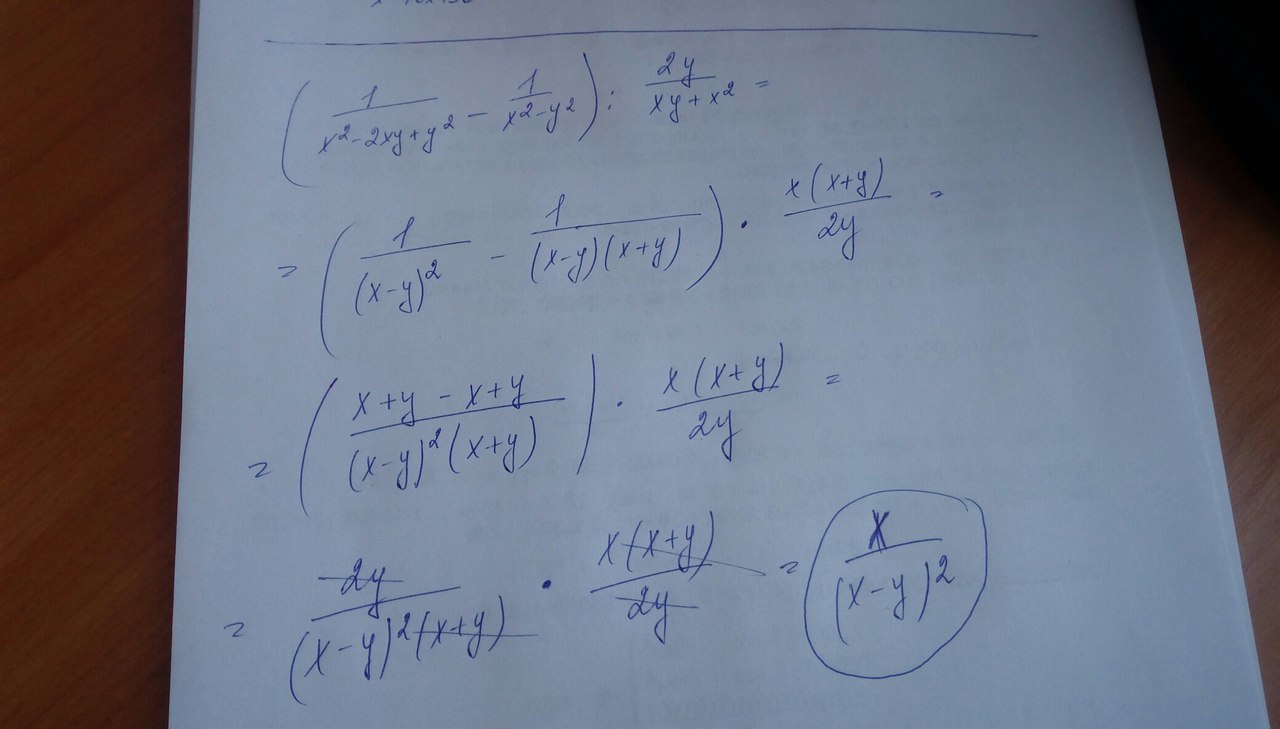 ( 1/(x²-2xy+y²) - 1/(x²-y²) ) : 2y/(xy+x²) =
= ( 1/(x-y)² - 1/((x-y)(x+y)) ) · x(x+y)/2y =
= ( (x+y-x+y)/((x-y)²(x+y)) ) · x(x+y)/2y =
= 2y/((x-y)²(x+y)) · x(x+y)/2y = x/(x-y)²